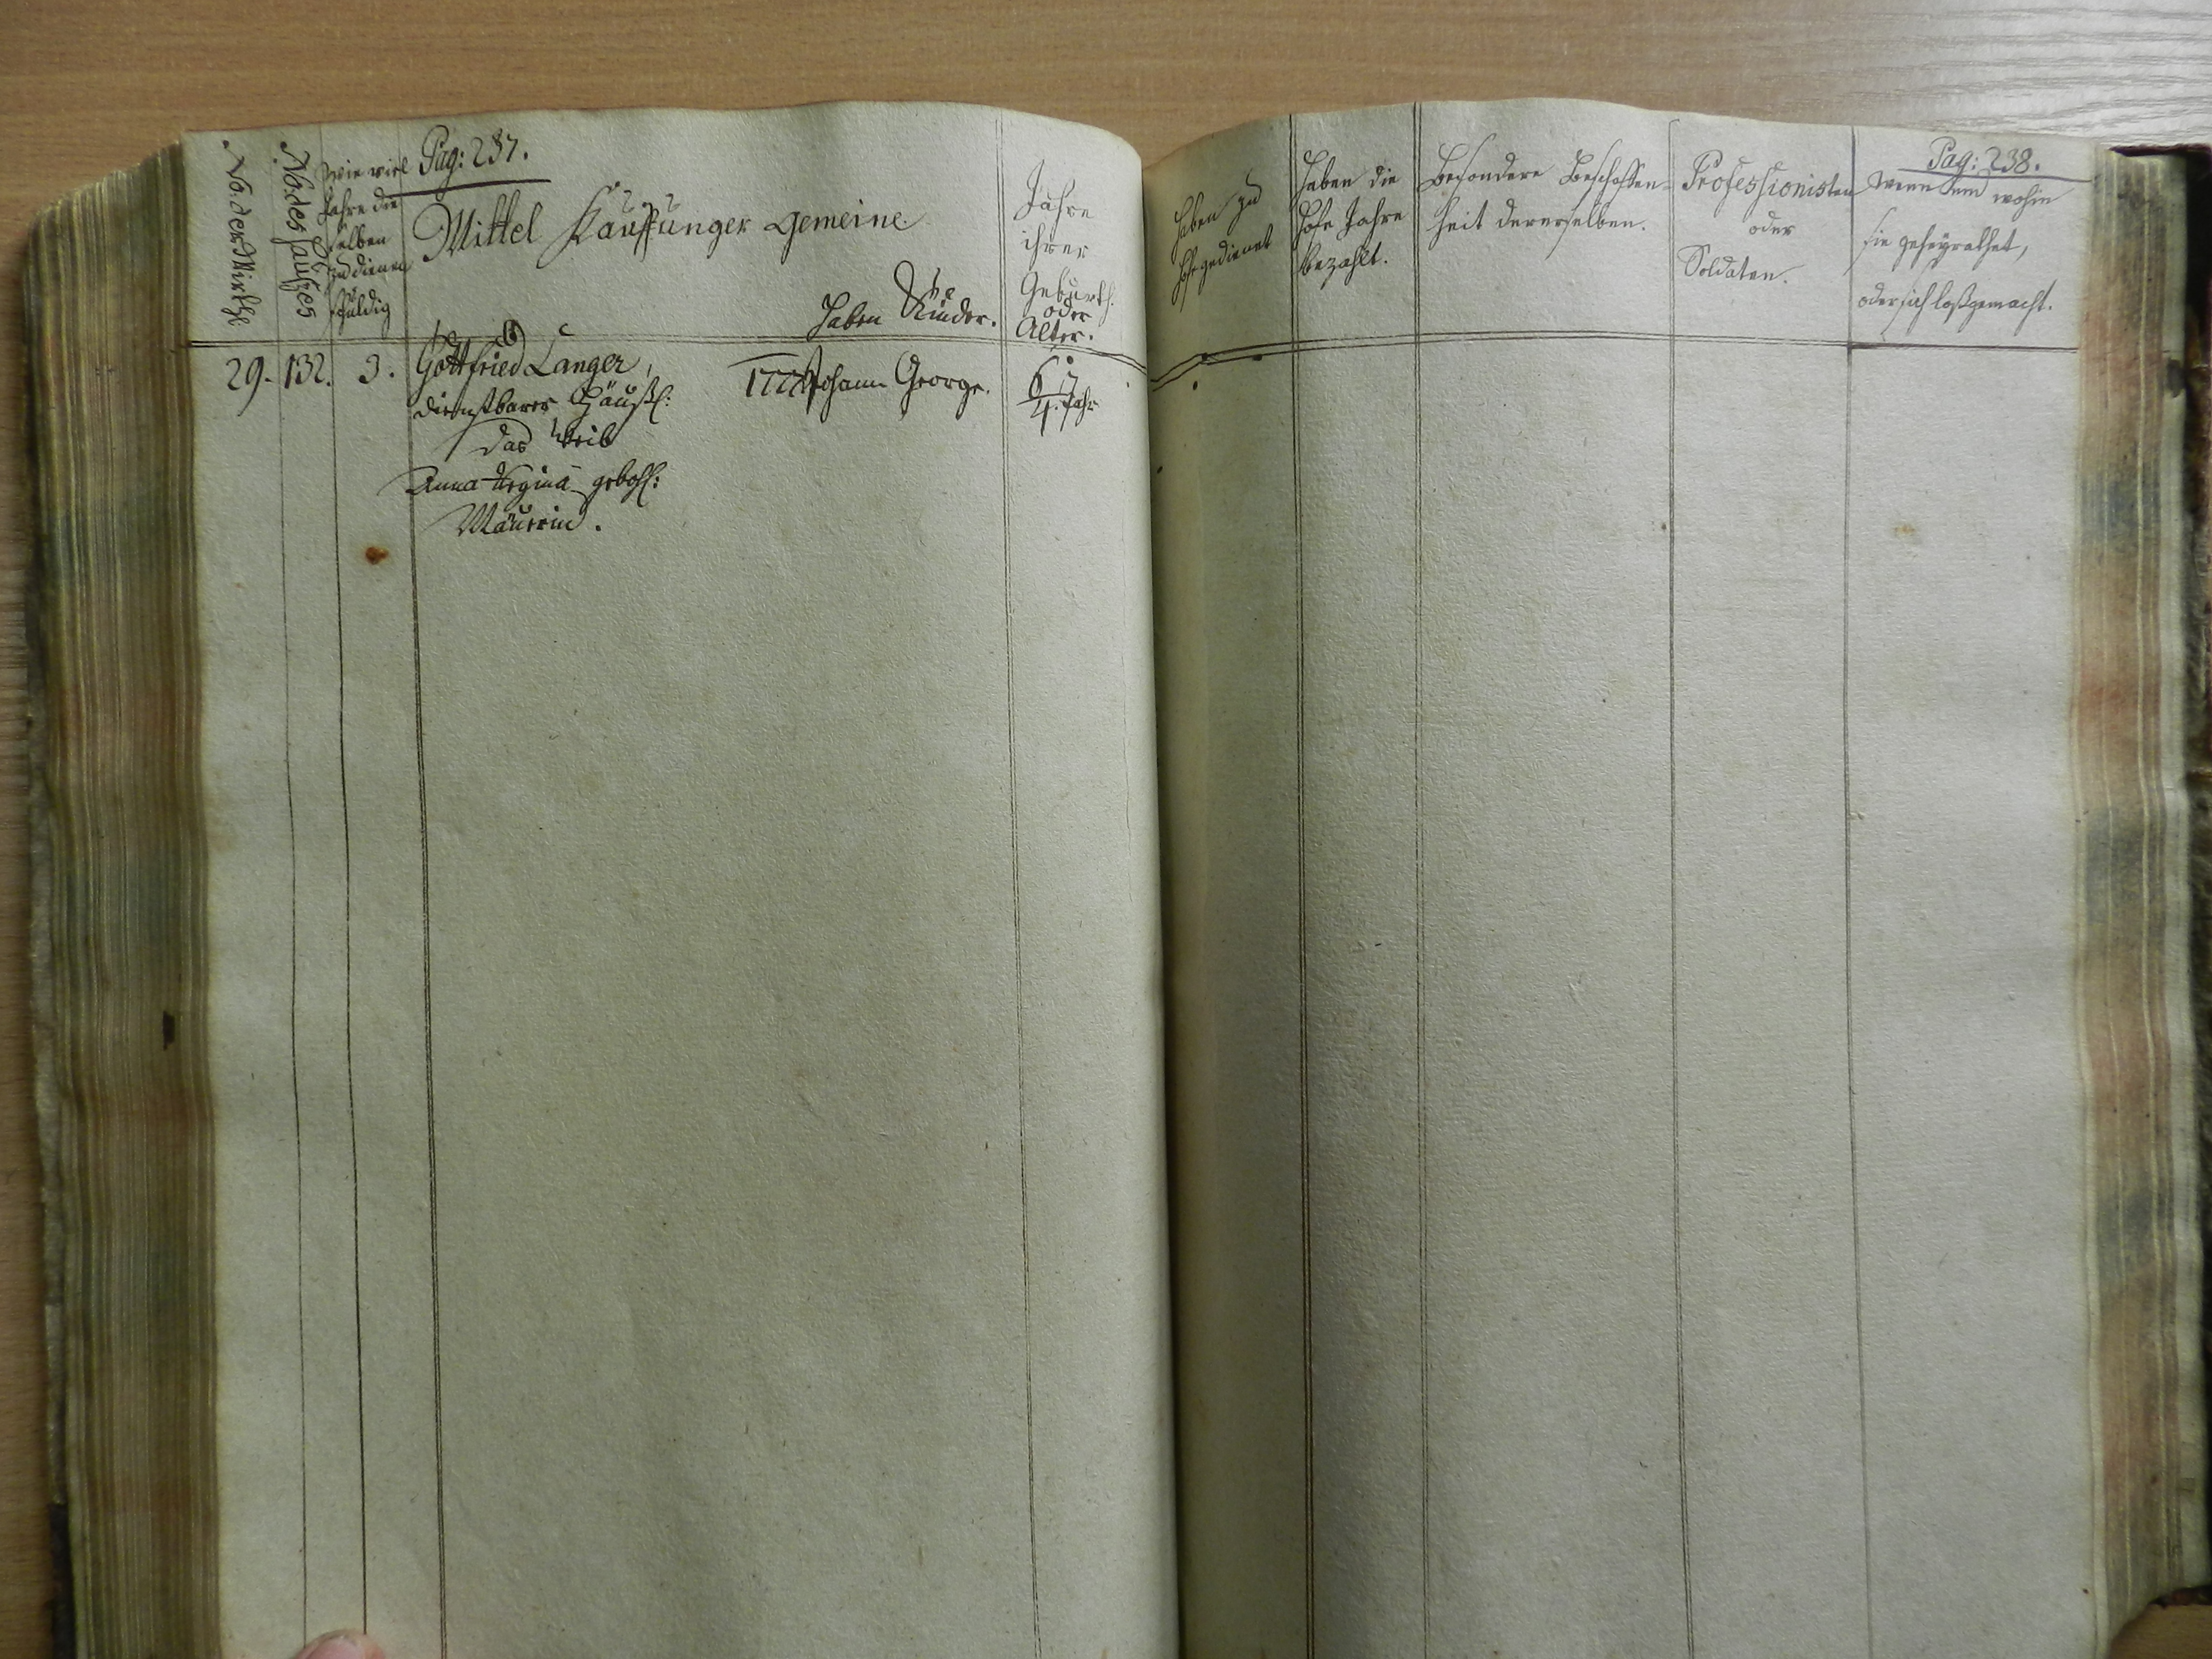 Pag: 237.
No. der Wirthe
No: des Haußes
Wie viel
Jahre die
selben
zu dienen
schuldig
Mittel Kauffunger Gemeine
Haben Kinder.
Jahre
ihrer
Geburth.
oder
Alter.
29. 132. 3. Gottfried Langer, Johann George.
dienstbarer Häußl: 4. Jahr
das Weib
Anna Regina gebohl:
Mäuerin.
Pag: 238.
Haben zu
Hofe gedienet
Haben die
Hofe Jahre
bezahlt.
Besondere Beschaffen-
heit dererselben.
Professionisten
oder
Soldaten.
Wenn und wohin
sie geheyrathet,
oder sich loßgemacht.